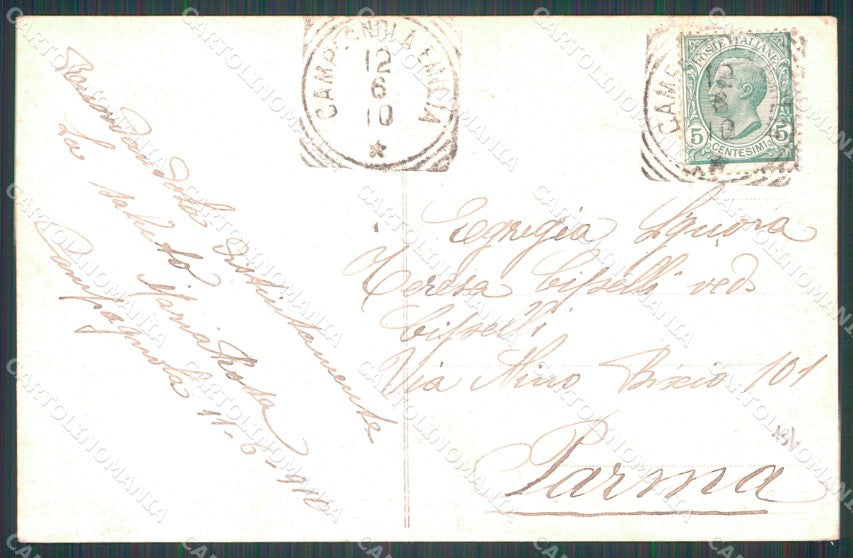 Ricordandola distintamente
La saluto Maria Rosa
Campagnola 11-6-910
CAMPAGNOLA EMILIA
12
6
10
POSTE ITALIANE
5 CENTESIMI 5
Egregia Signora
Teresa ved.
Via Nino Bixio 101
Parma
CARTOLINOMANIA